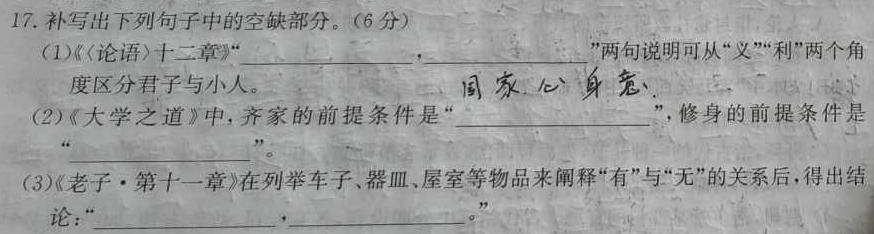 17.补写出下列句子中的空缺部分。(6分)
(1)《〈论语〉十二章》“____________,____________”两句说明可从“义”“利”两个角
度区分君子与小人。
国家.心身意.
(2)《大学之道》中,齐家的前提条件是“____________”,修身的前提条件是
“____________”。
(3)《老子·第十一章》在列举车子、器皿、屋室等物品来阐释“有”与“无”的关系后,得出结
论:“____________,____________。”